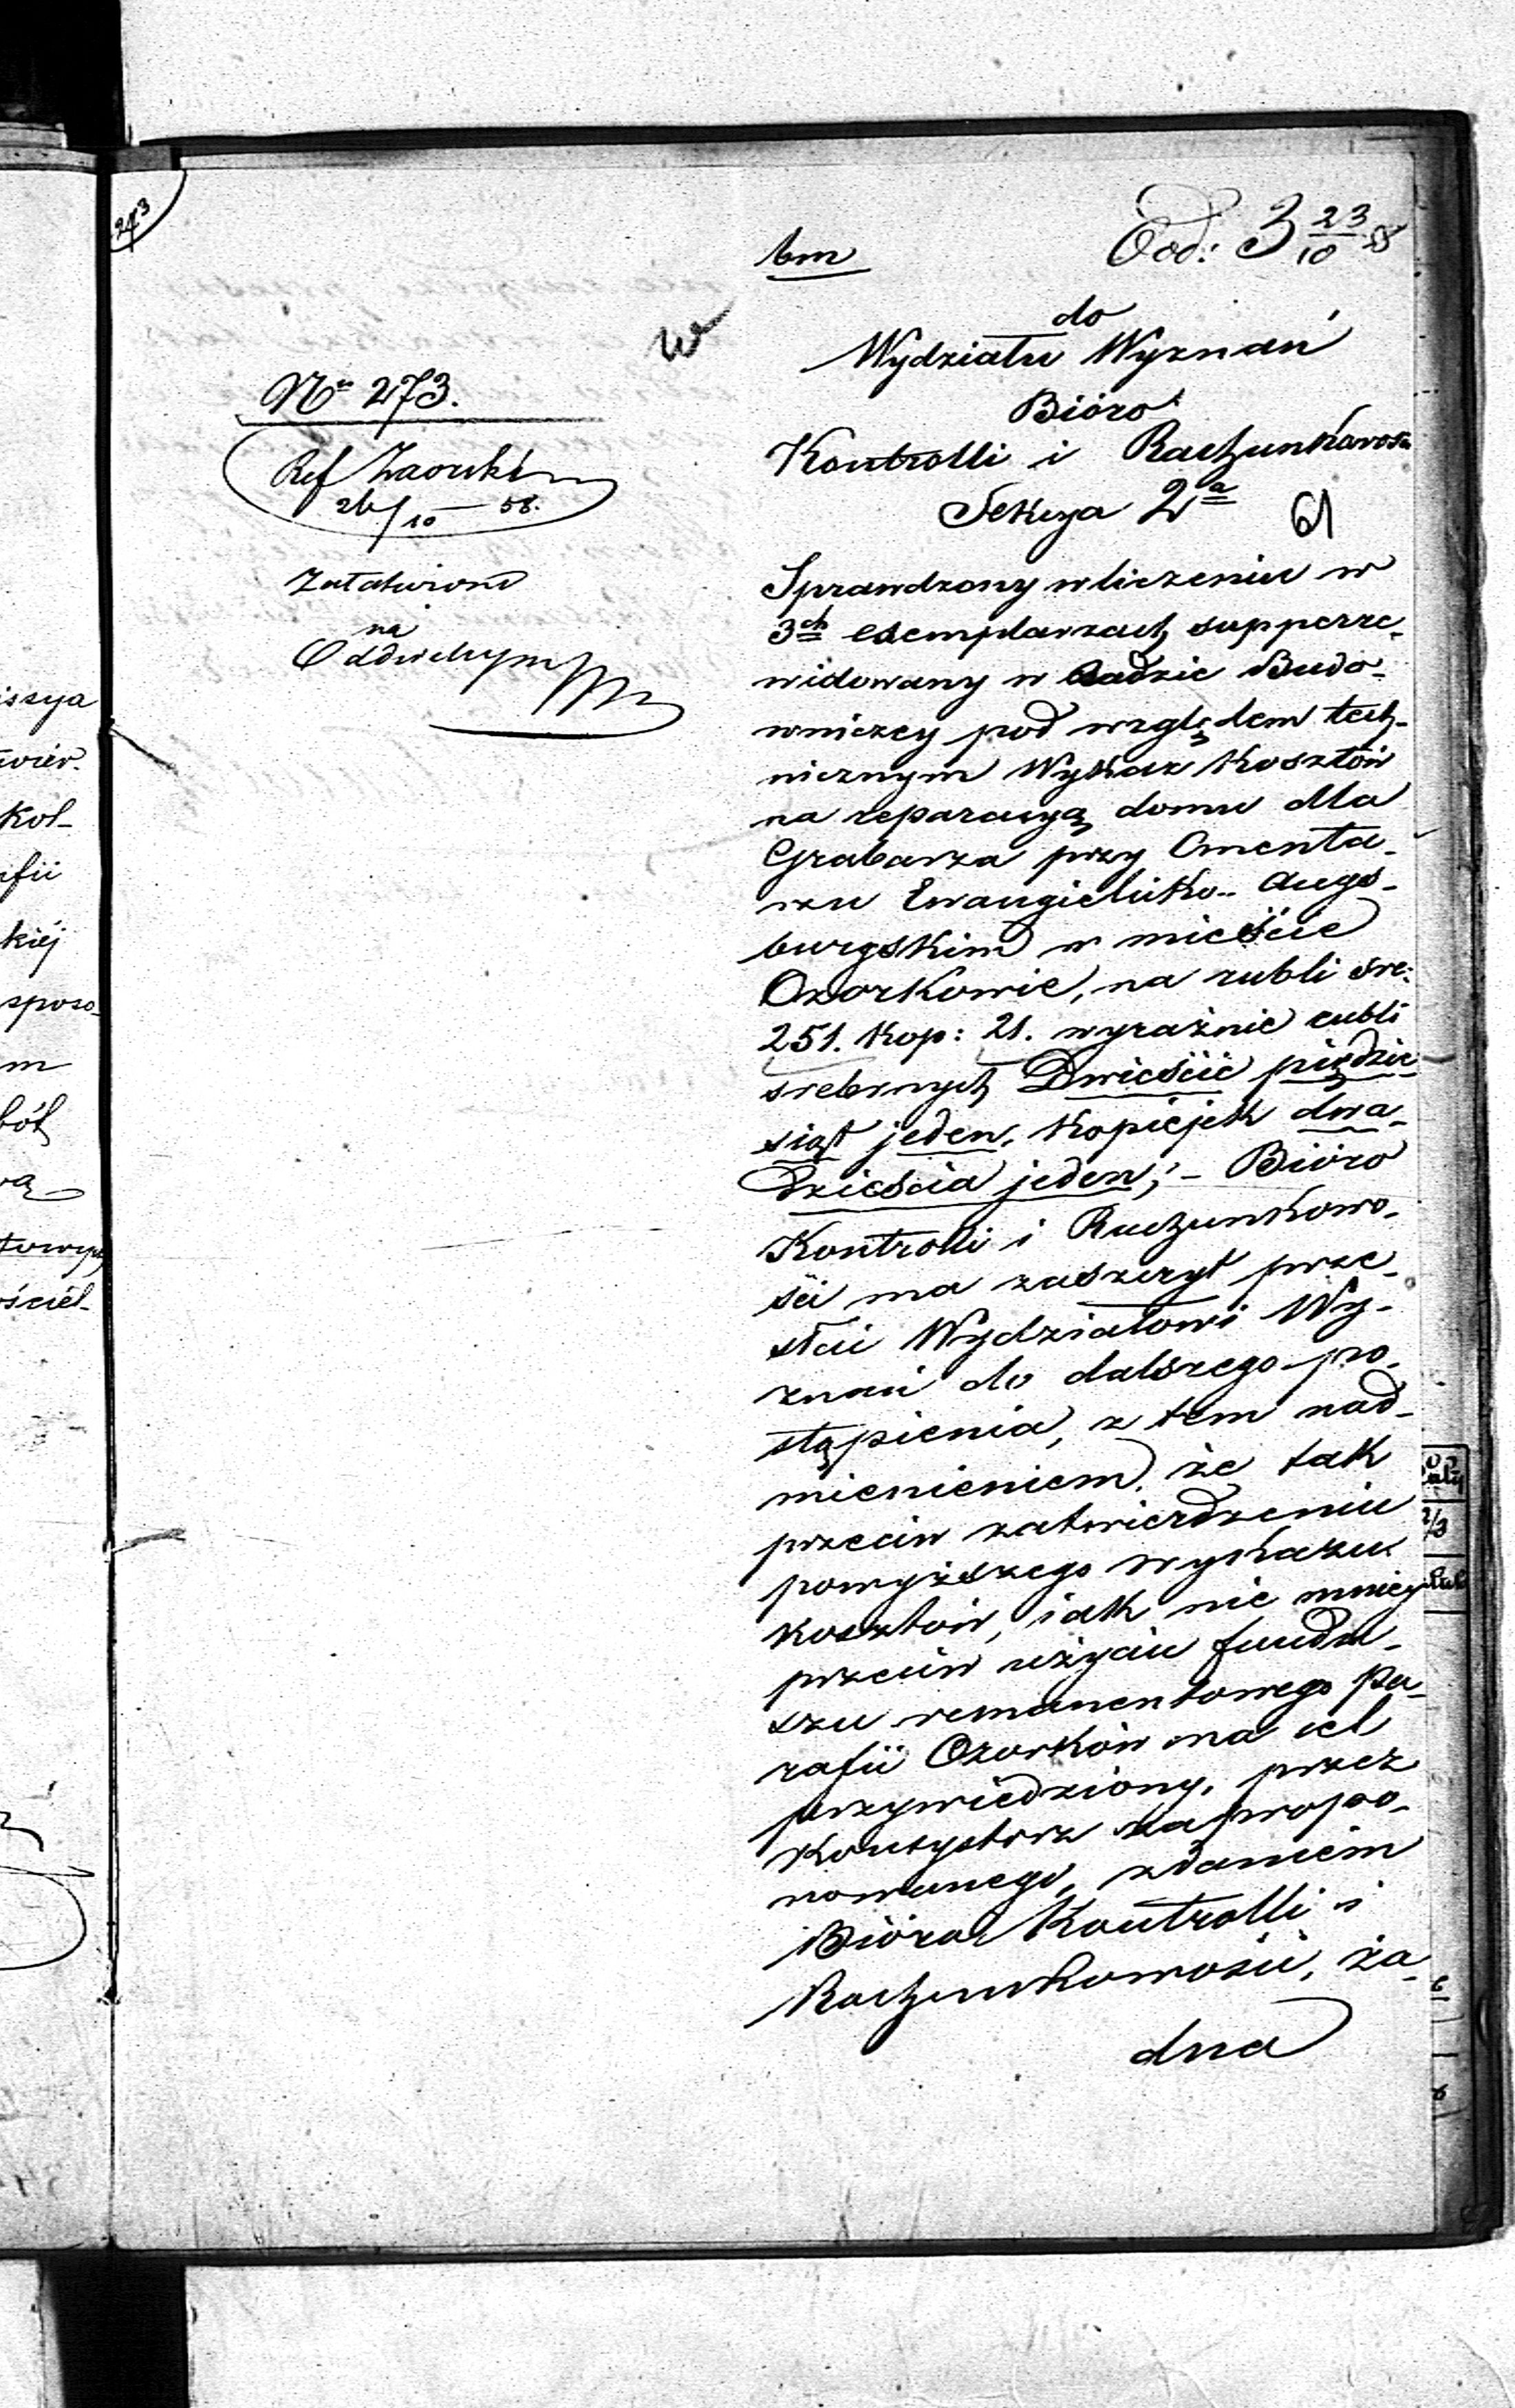 273
bm
Ood: 3 23/10 58
do
Wydziału Wyznań
Nr 273.
Bióro
Kontrolli i Rachunkowoś
Ref
26/10 58.
Sekcya 2a
61
Załatwiono
na
Oddzielnym
Sprawdzony w liczeniu w
3ch exemplarzach supperre-
widowany w Radzie Budo-
wniczey pod względem tech-
nicznym Wykaz Kosztów
na reparacyą domu dla
Grabarza przy Cmenta-
rzu Ewangielicko-Augs-
burgskim w mieście
Ozorkowie, na rubli sre:
251. Kop: 21. wyraźnie rubli
srebrnych Dwieście pięćdzie-
siąt jeden, Kopiejek dwa-
dzieścia jeden; - Bióro
Kontrolli i Rachunkowo-
ści ma zaszczyt prze-
słać Wydziałowi Wy-
znań do dalszego po-
stąpienia, z tem nad-
mienieniem, że tak
przeciw zatwierdzeniu
powyższego wykazu
kosztów, iak nie mniey
przeciw użyciu fundu-
szu remanentowego pa-
rafii Ozorków na cel
przywiedziony, przez
Konsystorz zapropo-
nowanego, zdaniem
Bióra Kontrolli i
Rachunkowości, ża-
dna
issya
kol-
fii
kiéj
sposo-
m
ściel-